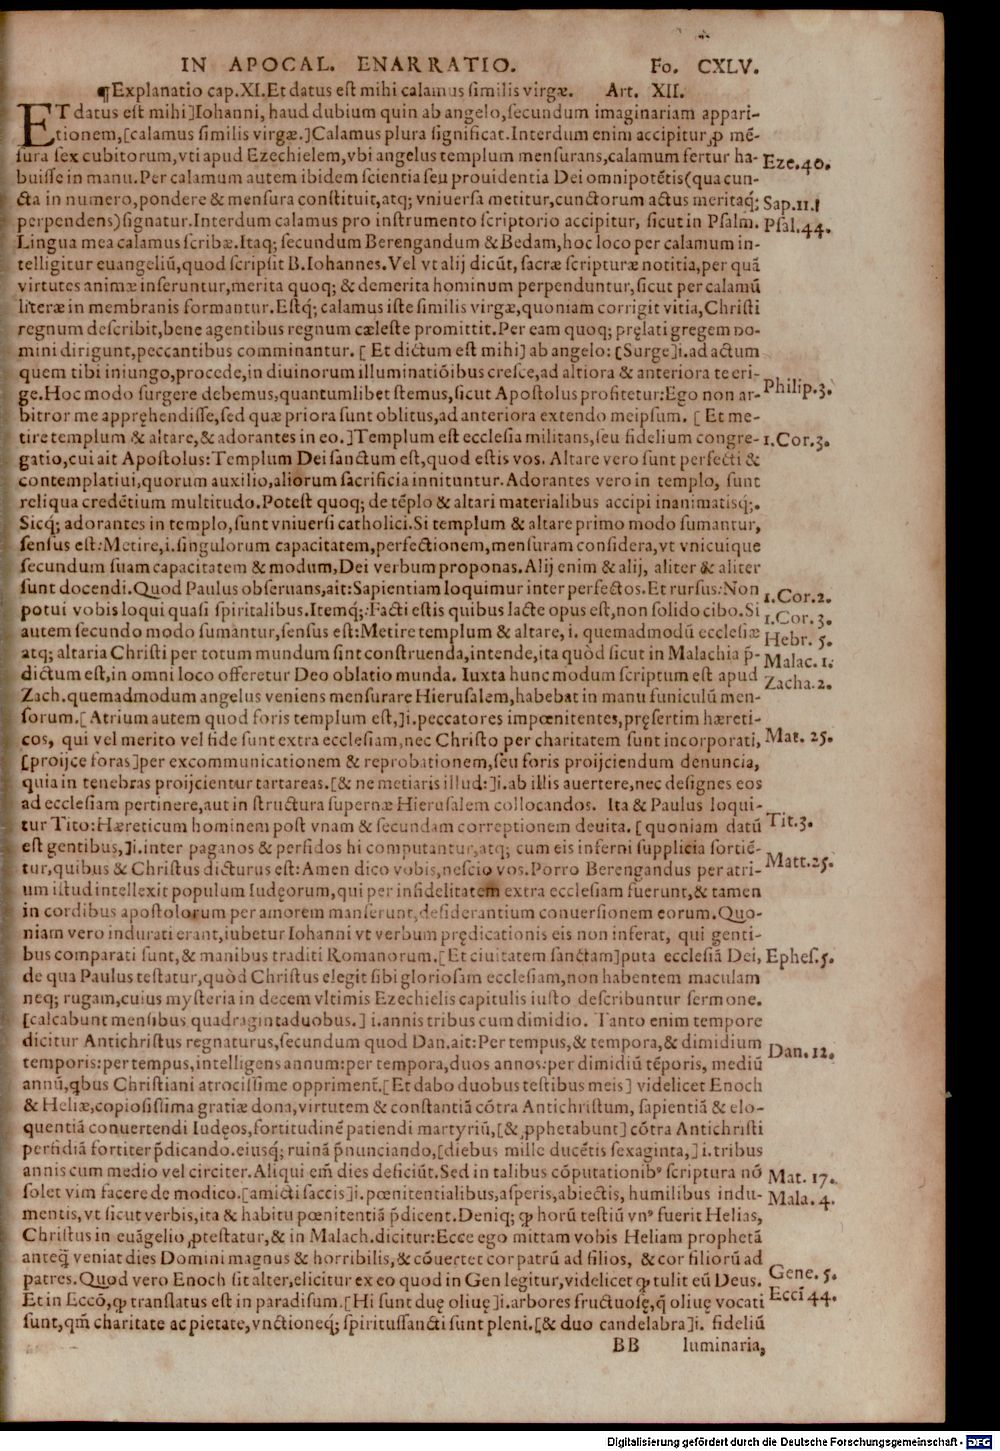 IN APOCAL. ENARRATIO. Fo. CXLV.
¶Explanatio cap.XI.Et datus est mihi calamus similis virgæ. Art. XII.
ET datus est mihi]Iohanni, haud dubium quin ab angelo,secundum imaginariam appari-
tionem,[calamus similis virgæ.]Calamus plura significat.Interdum enim accipitur ꝓ mē-
sura sex cubitorum,vti apud Ezechielem,vbi angelus templum mensurans,calamum fertur ha- Eze.40.
buisse in manu.Per calamum autem ibidem scientia seu prouidentia Dei omnipotētis(qua cun-
cta in numero,pondere & mensura constituit,atq; vniuersa metitur,cunctorum actus meritaq; Sap.11.f
perpendens)signatur.Interdum calamus pro instrumento scriptorio accipitur, sicut in Psalm. Psal.44.
Lingua mea calamus scribæ.Itaq; secundum Berengandum & Bedam,hoc loco per calamum in-
telligitur euangeliū,quod scripsit B.Iohannes.Vel vt alij dicūt, sacræ scripturæ notitia,per quā
virtutes animæ inseruntur,merita quoq; & demerita hominum perpenduntur,sicut per calamū
literæ in membranis formantur.Estq́; calamus iste similis virgæ,quoniam corrigit vitia,Christi
regnum describit,bene agentibus regnum cæleste promittit.Per eam quoq; pręlati gregem Do-
mini dirigunt,peccantibus comminantur. [ Et dictum est mihi] ab angelo: [Surge]i.ad actum
quem tibi iniungo,procede,in diuinorum illuminatiōibus cresce,ad altiora & anteriora te eri-
ge.Hoc modo surgere debemus,quantumlibet stemus,sicut Apostolus profitetur:Ego non ar- Philip.3.
bitror me appręhendisse,sed quæ priora sunt oblitus,ad anteriora extendo meipsum. [ Et me-
tire templum & altare,& adorantes in eo.]Templum est ecclesia militans,seu fidelium congre- 1.Cor.3.
gatio,cui ait Apostolus:Templum Dei sanctum est,quod estis vos. Altare vero sunt perfecti &
contemplatiui,quorum auxilio,aliorum sacrificia innituntur.Adorantes vero in templo, sunt
reliqua credētium multitudo.Potest quoq; de tēplo & altari materialibus accipi inanimatisq́;.
Sicq́; adorantes in templo,sunt vniuersi catholici.Si templum & altare primo modo sumantur,
sensus est:Metire,i.singulorum capacitatem,perfectionem,mensuram considera,vt vnicuique
secundum suam capacitatem & modum,Dei verbum proponas.Alij enim & alij, aliter & aliter
sunt docendi.Quod Paulus obseruans,ait:Sapientiam loquimur inter perfectos.Et rursus:Non 1.Cor.2.
potui vobis loqui quasi spiritalibus.Itemq́;:Facti estis quibus lacte opus est,non solido cibo.Si 1.Cor.3.
autem secundo modo sumantur,sensus est:Metire templum & altare, i. quemadmodū ecclesiæ Hebr. 5.
atq; altaria Christi per totum mundum sint construenda,intende,ita quòd sicut in Malachia p̄- Malac. 1.
dictum est,in omni loco offeretur Deo oblatio munda. Iuxta hunc modum scriptum est apud Zacha.2.
Zach.quemadmodum angelus veniens mensurare Hierusalem,habebat in manu funiculū men-
sorum.[ Atrium autem quod foris templum est,]i.peccatores impœnitentes,pręsertim hæreti-
cos, qui vel merito vel fide sunt extra ecclesiam,nec Christo per charitatem sunt incorporati, Mat. 25.
[proijce foras]per excommunicationem & reprobationem,seu foris proijciendum denuncia,
quia in tenebras proijcientur tartareas.[& ne metiaris illud:]i.ab illis auertere,nec designes eos
ad ecclesiam pertinere,aut in structura supernæ Hierusalem collocandos. Ita & Paulus loqui-
tur Tito:Hæreticum hominem post vnam & secundam correptionem deuita. [ quoniam datū Tit.3.
est gentibus,]i.inter paganos & perfidos hi computantur,atq; cum eis inferni supplicia sortiē-
tur,quibus & Christus dicturus est:Amen dico vobis,nescio vos.Porro Berengandus per atri- Matt.25.
um istud intellexit populum Iudęorum,qui per infidelitatem extra ecclesiam fuerunt,& tamen
in cordibus apostolorum per amorem manserunt,desiderantium conuersionem eorum.Quo-
niam vero indurati erant,iubetur Iohanni vt verbum prędicationis eis non inferat, qui genti-
bus comparati sunt,& manibus traditi Romanorum.[Et ciuitatem sanctam]puta ecclesiā Dei, Ephes.5.
de qua Paulus testatur,quòd Christus elegit sibi gloriosam ecclesiam,non habentem maculam
neq; rugam,cuius mysteria in decem vltimis Ezechielis capitulis iusto describuntur sermone.
[calcabunt mensibus quadragintaduobus.] i.annis tribus cum dimidio. Tanto enim tempore
dicitur Antichristus regnaturus,secundum quod Dan.ait:Per tempus,& tempora,& dimidium Dan.12.
temporis:per tempus,intelligens annum:per tempora,duos annos:per dimidiū tēporis, mediū
annū,q̇bus Christiani atrocissime oppriment̃.[Et dabo duobus testibus meis] videlicet Enoch
& Heliæ,copiosissima gratiæ dona,virtutem & constantiā cōtra Antichristum, sapientiā & elo-
quentiā conuertendi Iudęos,fortitudinē patiendi martyriū,[& ꝓphetabunt] cōtra Antichristi
perfidiā fortiter p̄dicando.eiusq́; ruinā p̄nunciando,[diebus mille ducētis sexaginta,] i.tribus
annis cum medio vel circiter.Aliqui em̄ dies deficiūt.Sed in talibus cōputationibꝰ scriptura nō
solet vim facere de modico.[amicti saccis]i.pœnitentialibus,asperis,abiectis, humilibus indu- Mat. 17.
mentis,vt sicut verbis,ita & habitu pœnitentiā p̄dicent.Deniq; ꝙ horū testiū vnꝰ fuerit Helias, Mala. 4.
Christus in euāgelio ꝓtestatur,& in Malach.dicitur:Ecce ego mittam vobis Heliam prophetā
anteq̄ veniat dies Domini magnus & horribilis,& cōuertet cor patrū ad filios, & cor filiorū ad
patres.Quod vero Enoch sit alter,elicitur ex eo quod in Gen legitur,videlicet ꝙ tulit eū Deus. Gene. 5.
Et in Eccō,ꝙ translatus est in paradisum.[Hi sunt duę oliuę]i.arbores fructuosę,q̄ oliuę vocati Eccī 44.
sunt,qm̄ charitate ac pietate,vnctioneq́; spiritussancti sunt pleni.[& duo candelabra]i. fideliū
BB luminaria,
Digitalisierung gefördert durch die Deutsche Forschungsgemeinschaft - DFG